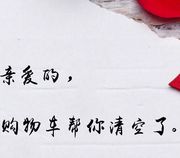 亲爱的，
购物车帮你清空了。